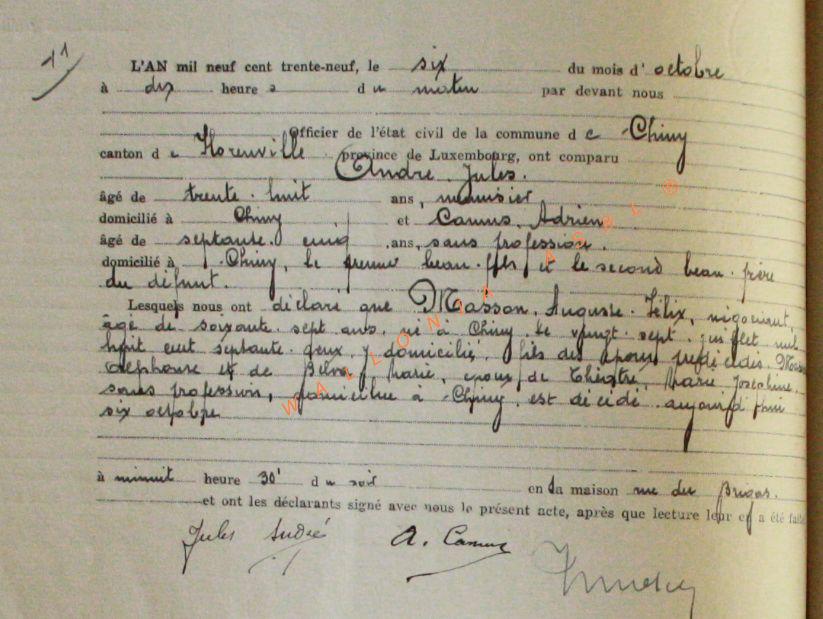 11
L'AN mil neuf cent trente-neuf, le six du mois d' octobre
à dix heure s du matin par devant nous
Officier de l'état civil de la commune de Chiny
canton de Florenville province de Luxembourg, ont comparu
André Jules.
âgé de trente-huit ans, menuisier
domicilié à Chiny et Camus, Adrien
âgé de septante-cinq ans, sans profession.
domicilié à Chiny, le premier beau-fils et le second beau-frère
du défunt.
Lesquels nous ont déclaré que Masson, Auguste-Félix, négociant,
âgé de soixante-sept ans, né à Chiny le vingt-sept juillet mil
huit cent septante-deux, y domicilié, fils des époux prédécédés Masson
et de Marie, époux de Marie Joséphine,
sans profession, domiciliée à Chiny, est décédé aujourd'hui
six octobre
à minuit heure 30' du soir en sa maison rue du
et ont les déclarants signé avec nous le présent acte, après que lecture leur en a été faite
Jules André A. Camus
WALLONIA ASBL ©